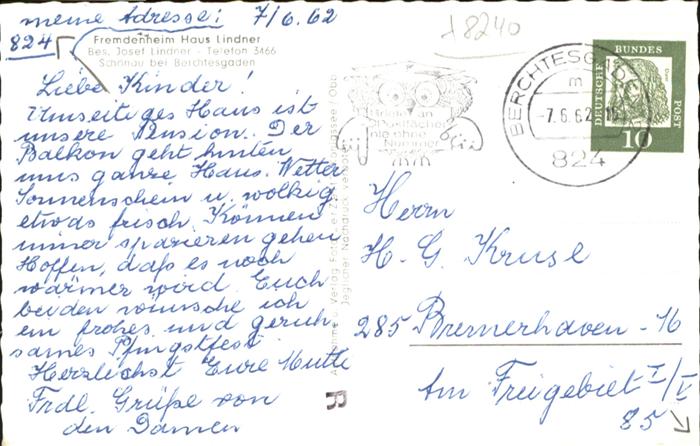 meine Adresse: 7/6.62
824
Fremdenheim Haus Lindner
Bes. Josef Lindner - Telefon 3466
Schönau bei Berchtesgaden
Liebe Kinder!
Umseitiges Haus ist
unsere Pension. Der
Balkon geht hinten
ums ganze Haus. Wetter
Sonnenschein u. wolkig
etwas frisch. Können
immer spazieren gehen
Hoffen, daß es noch
wärmer wird. Euch
beiden wünsche ich
ein frohes und geruh-
sames Pfingstfest
Herzlichst Eure Mutti
Frdl. Grüße von
den Damen
18240
BERCHTESGADEN
m
-7.6.62
824
DEUTSCHE BUNDES POST
10
Briefe an
Postfächer
nie ohne
Nummer
Jeglicher Nachdruck verboten
R
Herrn
H. G. Kruse
285 Bremerhaven - 16
Am Freigebiet I/V
85